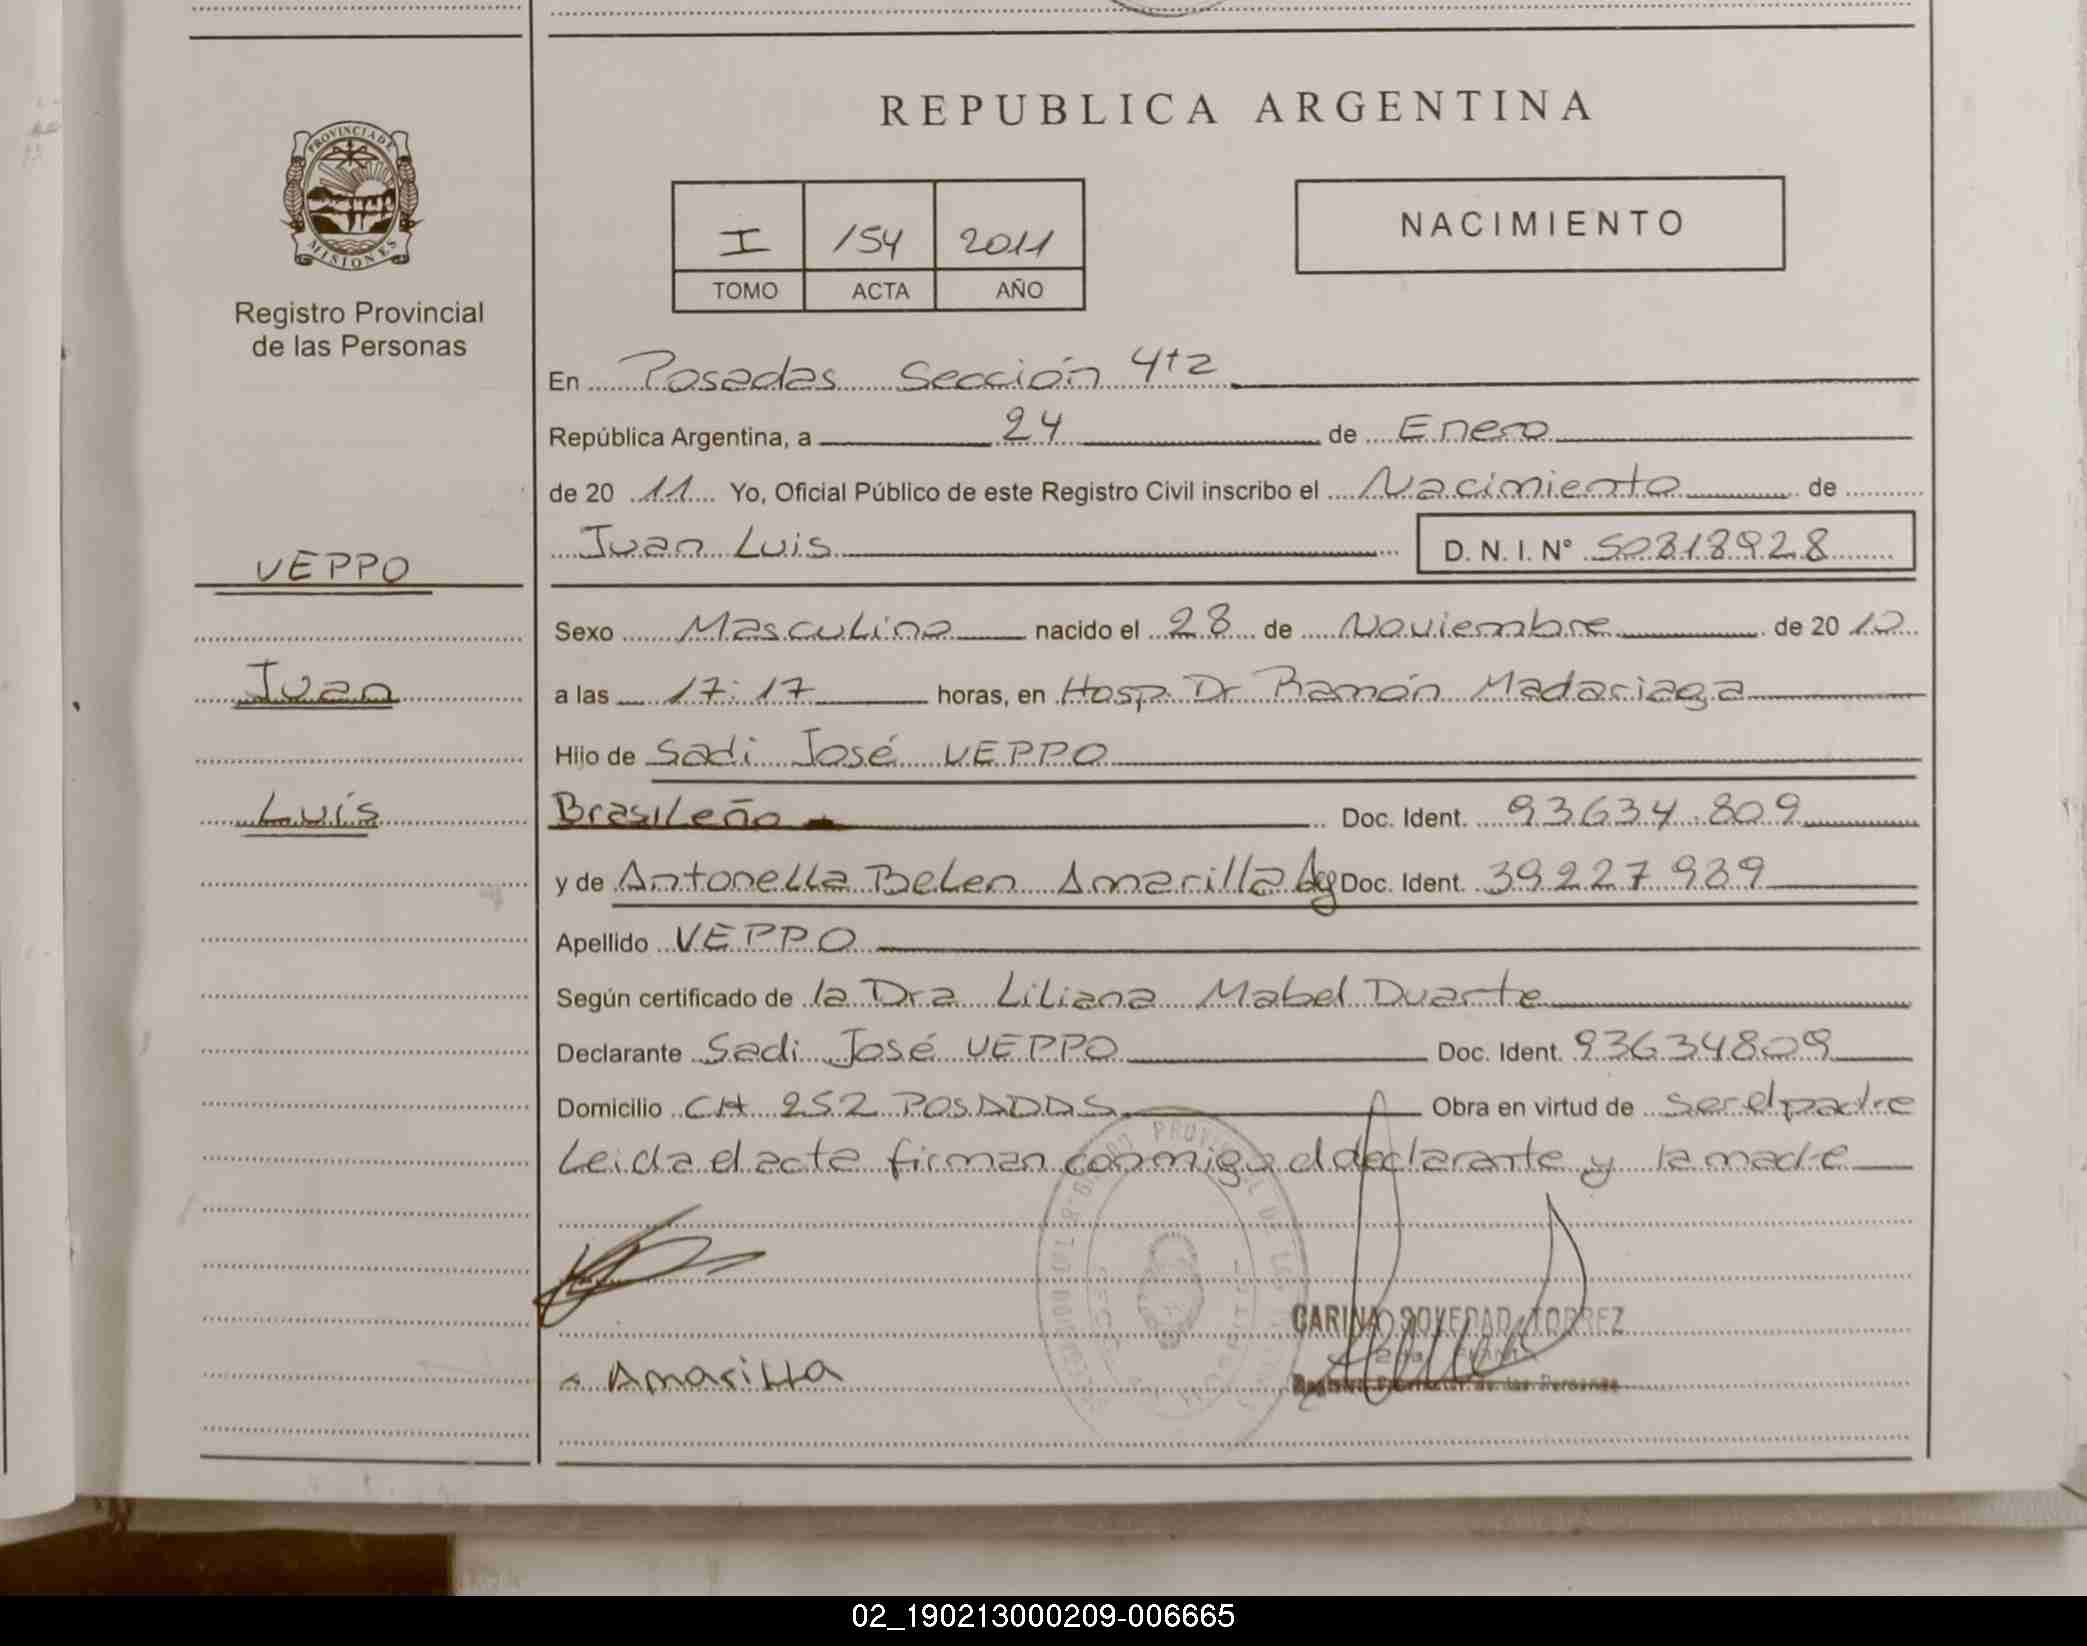 REPUBLICA ARGENTINA
PROVINCIA DE
MISIONES
Registro Provincial
de las Personas
I 154 2011
TOMO ACTA AÑO
NACIMIENTO
En Posadas Sección 4ta
República Argentina, a 24 de Enero
de 20 11 Yo, Oficial Público de este Registro Civil inscribo el Nacimiento de
Juan Luis D. N. I. N° 50818928
VEPPO
Juan
Luís
Sexo Masculino nacido el 28 de Noviembre de 20 10
a las 17:17 horas, en Hosp. Dr Ramón Madariaga
Hijo de Sadi José VEPPO
Brasileño Doc. Ident. 93634.809
y de Antonella Belen Amarilla Arg Doc. Ident. 39227939
Apellido VEPPO
Según certificado de la Dra Liliana Mabel Duarte
Declarante Sadi José VEPPO Doc. Ident. 93634809
Domicilio CH 252 POSADAS Obra en virtud de ser el padre
Leida el acta firman conmigo el declarante y la madre
CARINA SOLEDAD TORREZ
Amarilla
Registro Provincial de las Personas
02_190213000209-006665